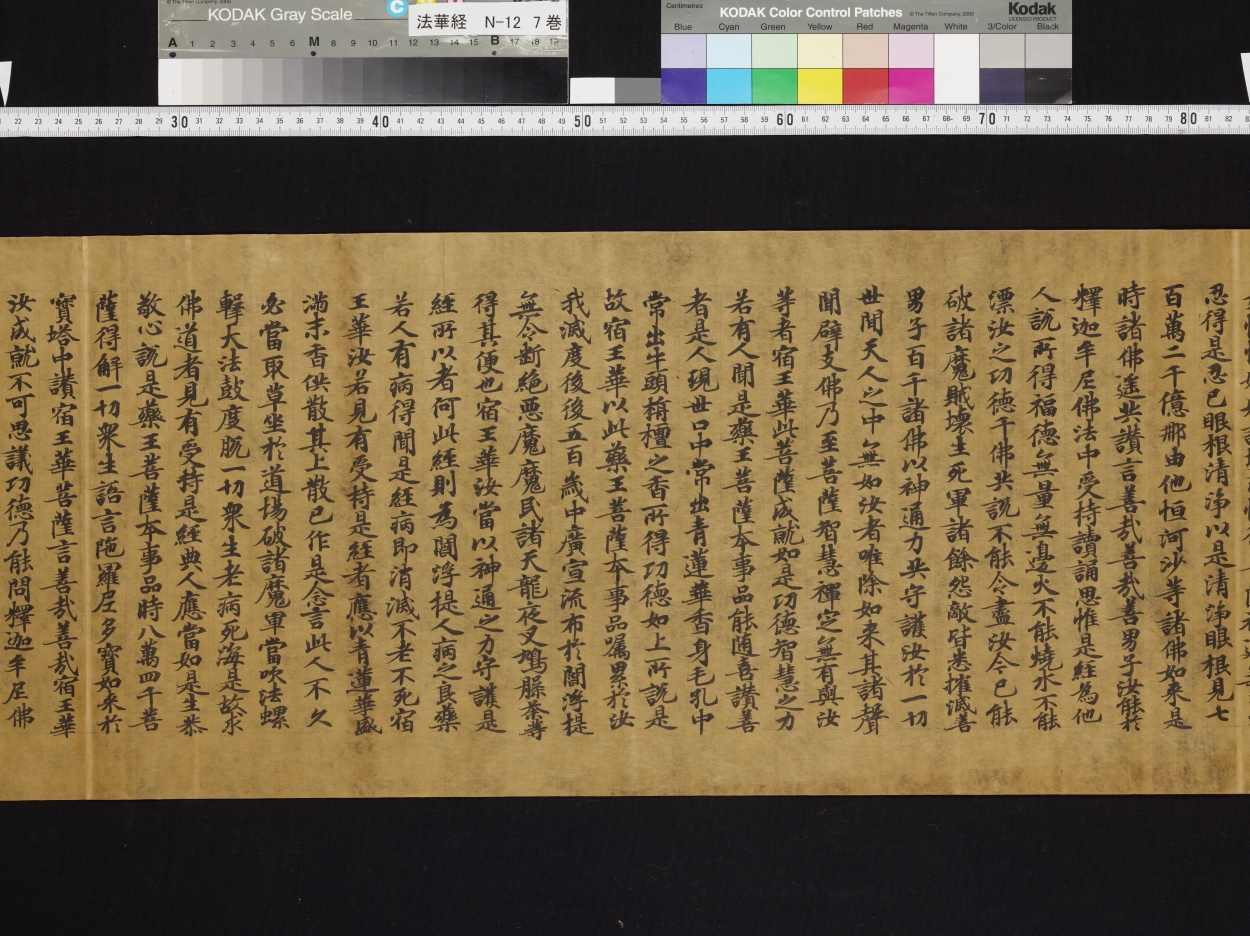 KODAK Gray Scale
法華経 N-12 7巻
A 1 2 3 4 5 6 M 8 9 10 11 12 13 14 15 B 17 18 19
Centimetres
KODAK Color Control Patches
© The Tiffen Company, 2000
Kodak
LICENSED PRODUCT
Blue Cyan Green Yellow Red Magenta White 3/Color Black
22 23 24 25 26 27 28 29 30 31 32 33 34 35 36 37 38 39 40 41 42 43 44 45 46 47 48 49 50 51 52 53 54 55 56 57 58 59 60 61 62 63 64 65 66 67 68 69 70 71 72 73 74 75 76 77 78 79 80 81 82
忍得是忍已眼根清淨以是清淨眼根見七
百萬二千億那由他恒河沙等諸佛如来是
時諸佛遥共讃言善哉善哉善男子汝能於
釋迦牟尼佛法中受持讀誦思惟是経為他
人説所得福德無量無邊火不能燒水不能
漂汝之功德千佛共説不能令盡汝今已能
破諸魔賊壊生死軍諸餘怨敵皆悉摧滅善
男子百千諸佛以神通力共守護汝於一切
世間天人之中無如汝者唯除如来其諸聲
聞辟支佛乃至菩薩智慧禪定無有與汝
等者宿王華此菩薩成就如是功德智慧之力
若有人聞是藥王菩薩本事品能随喜讃善
者是人現世口中常出青蓮華香身毛孔中
常出牛頭栴檀之香所得功德如上所説是
故宿王華以此藥王菩薩本事品嘱累於汝
我滅度後後五百歳中廣宣流布於閻浮提
無令断絶悪魔魔民諸天龍夜叉鳩槃荼等
得其便也宿王華汝當以神通之力守護是
経所以者何此経則為閻浮提人病之良藥
若人有病得聞是経病即消滅不老不死宿
王華汝若見有受持是経者應以青蓮華盛
満末香供散其上散已作是念言此人不久
必當取草坐於道場破諸魔軍當吹法螺
擊大法鼓度脱一切衆生老病死海是故求
佛道者見有受持是経典人應當如是生恭
敬心説是藥王菩薩本事品時八萬四千菩
薩得解一切衆生語言陁羅尼多寶如来於
寶塔中讃宿王華菩薩言善哉善哉宿王華
汝成就不可思議功德乃能問釋迦牟尼佛